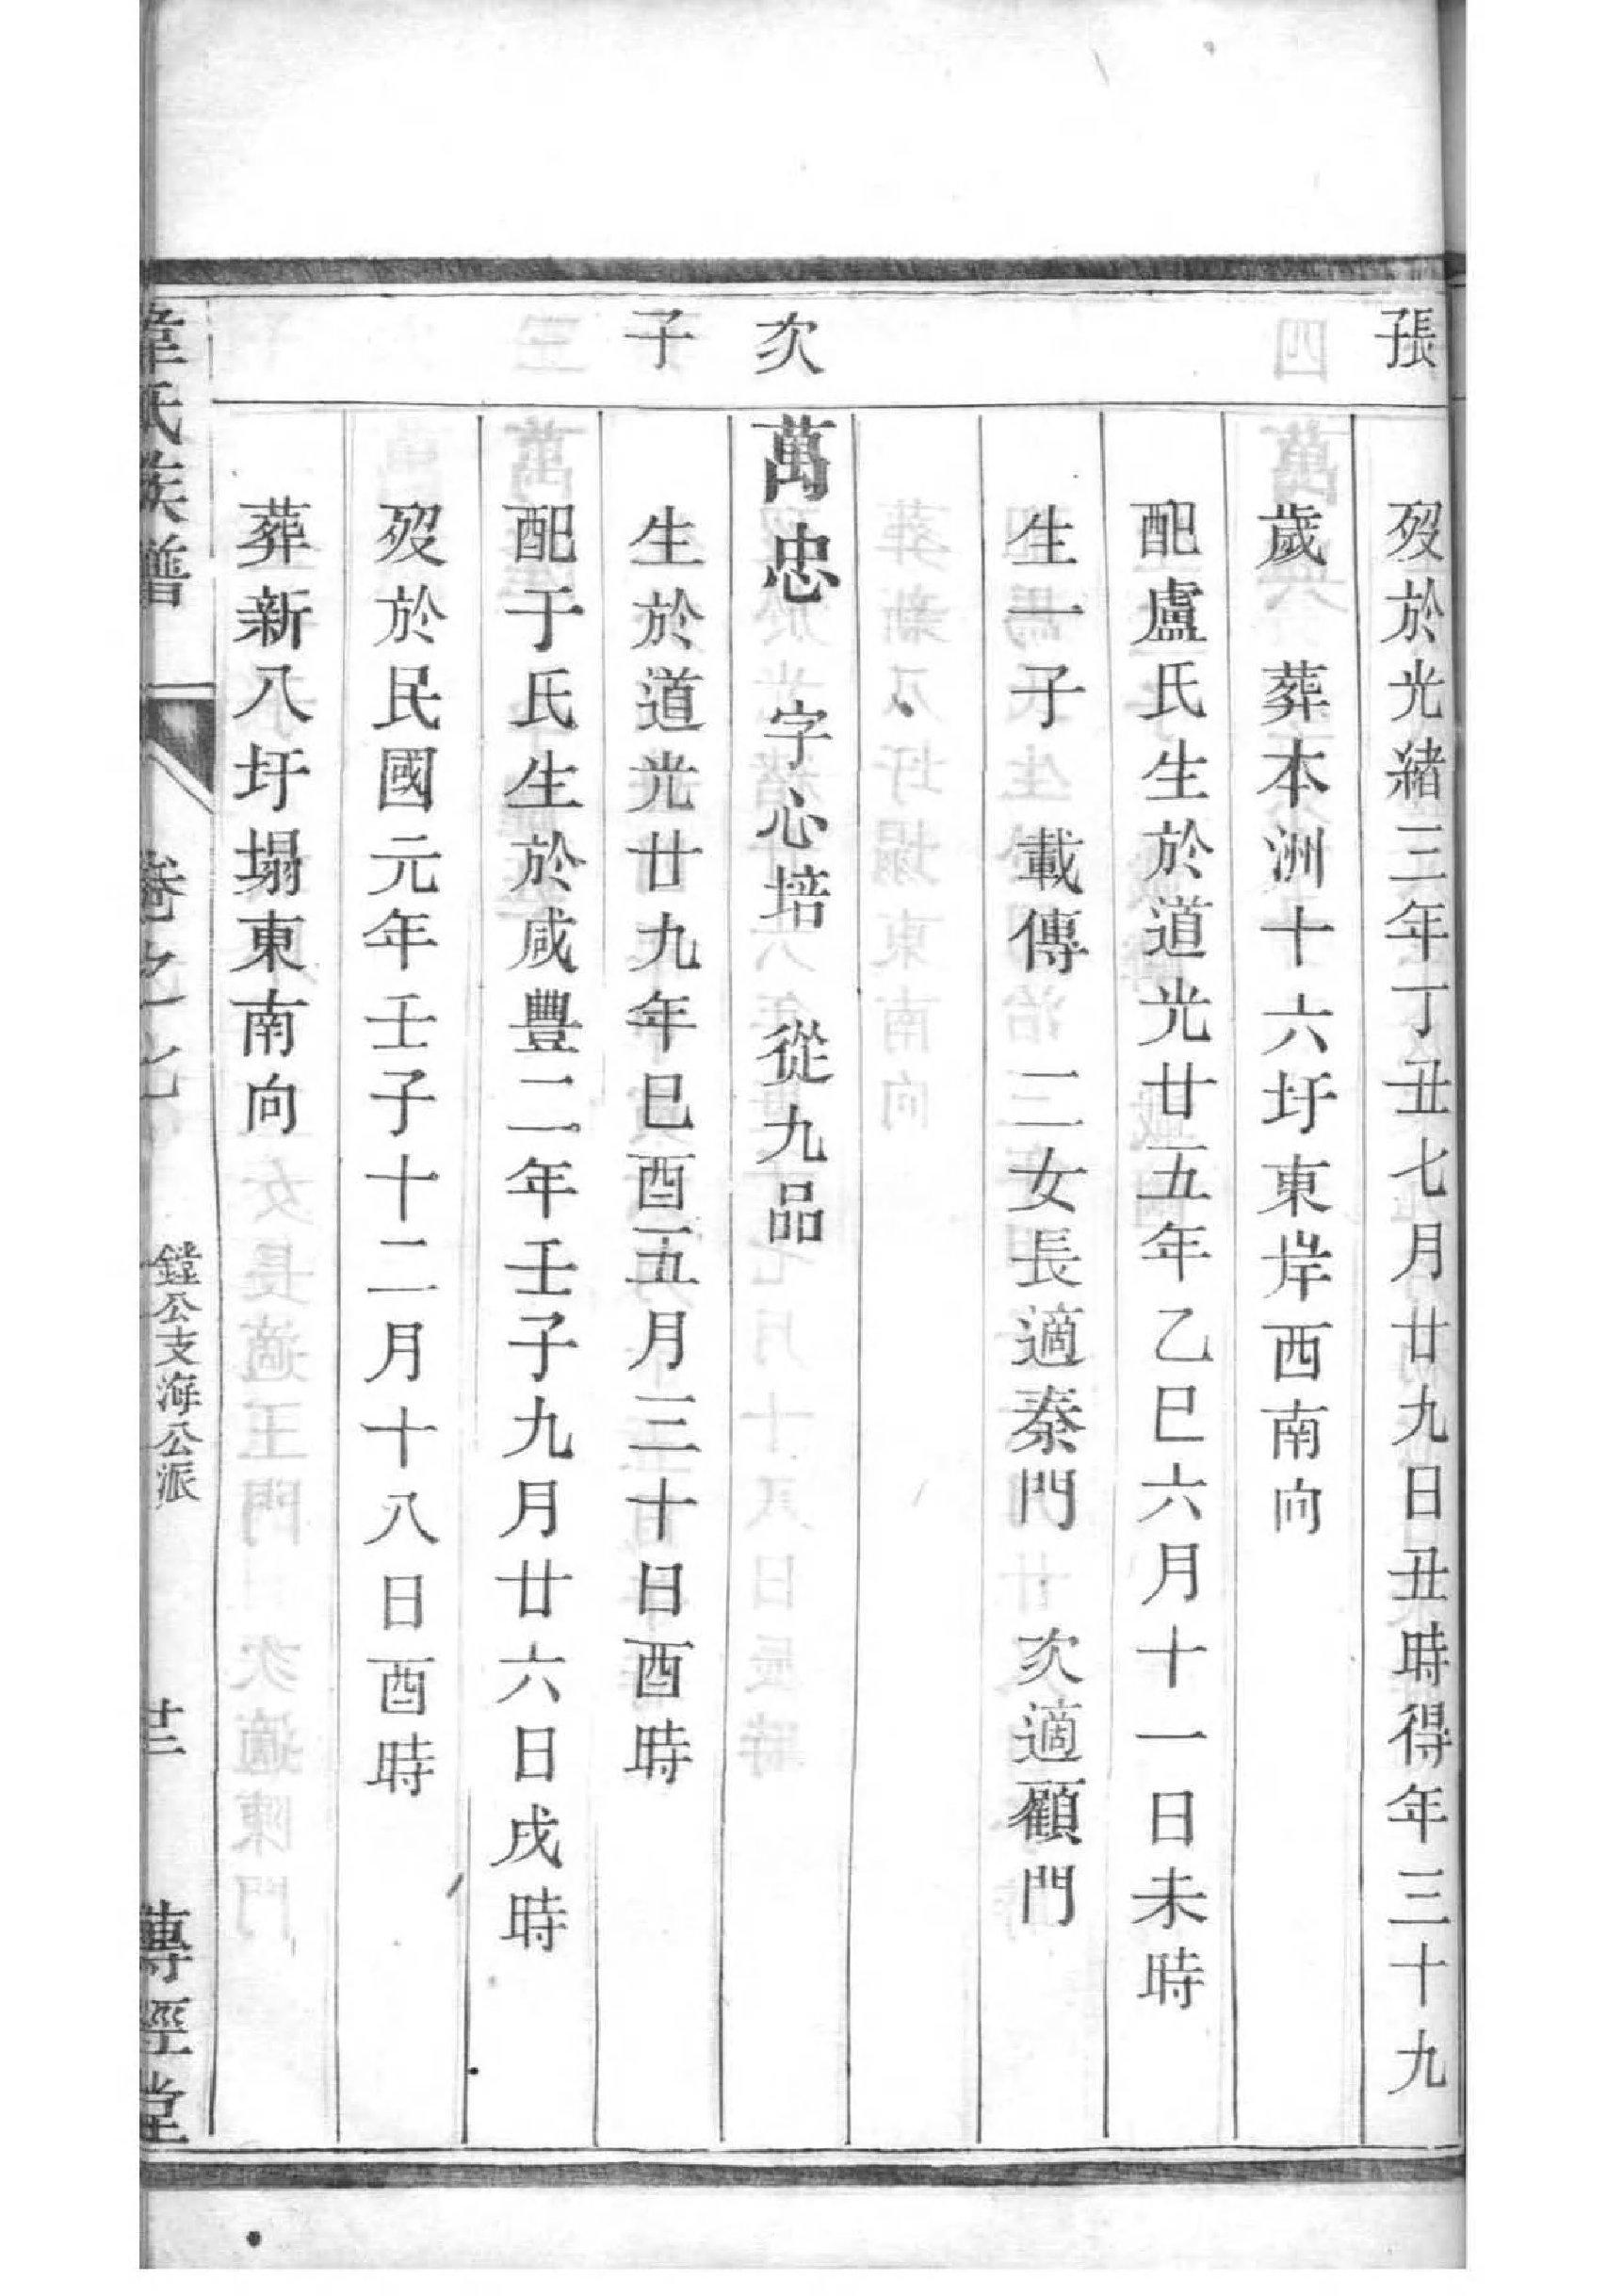 張
歿於光緒三年丁丑七月廿九日丑時得年三十九
歲 葬本洲十六圩東岸西南向
配盧氏生於道光廿五年乙巳六月十一日未時
生一子 載傳 二女長適秦門 次適顧門
次
萬忠 字心培 從九品
子
生於道光廿九年巳酉五月三十日酉時
配于氏生於咸豐二年壬子九月廿六日戌時
歿於民國元年壬子十二月十八日酉時
葬新八圩塌東南向
韋氏族譜 卷之七 鏜公支海公派 廿二 傳經堂